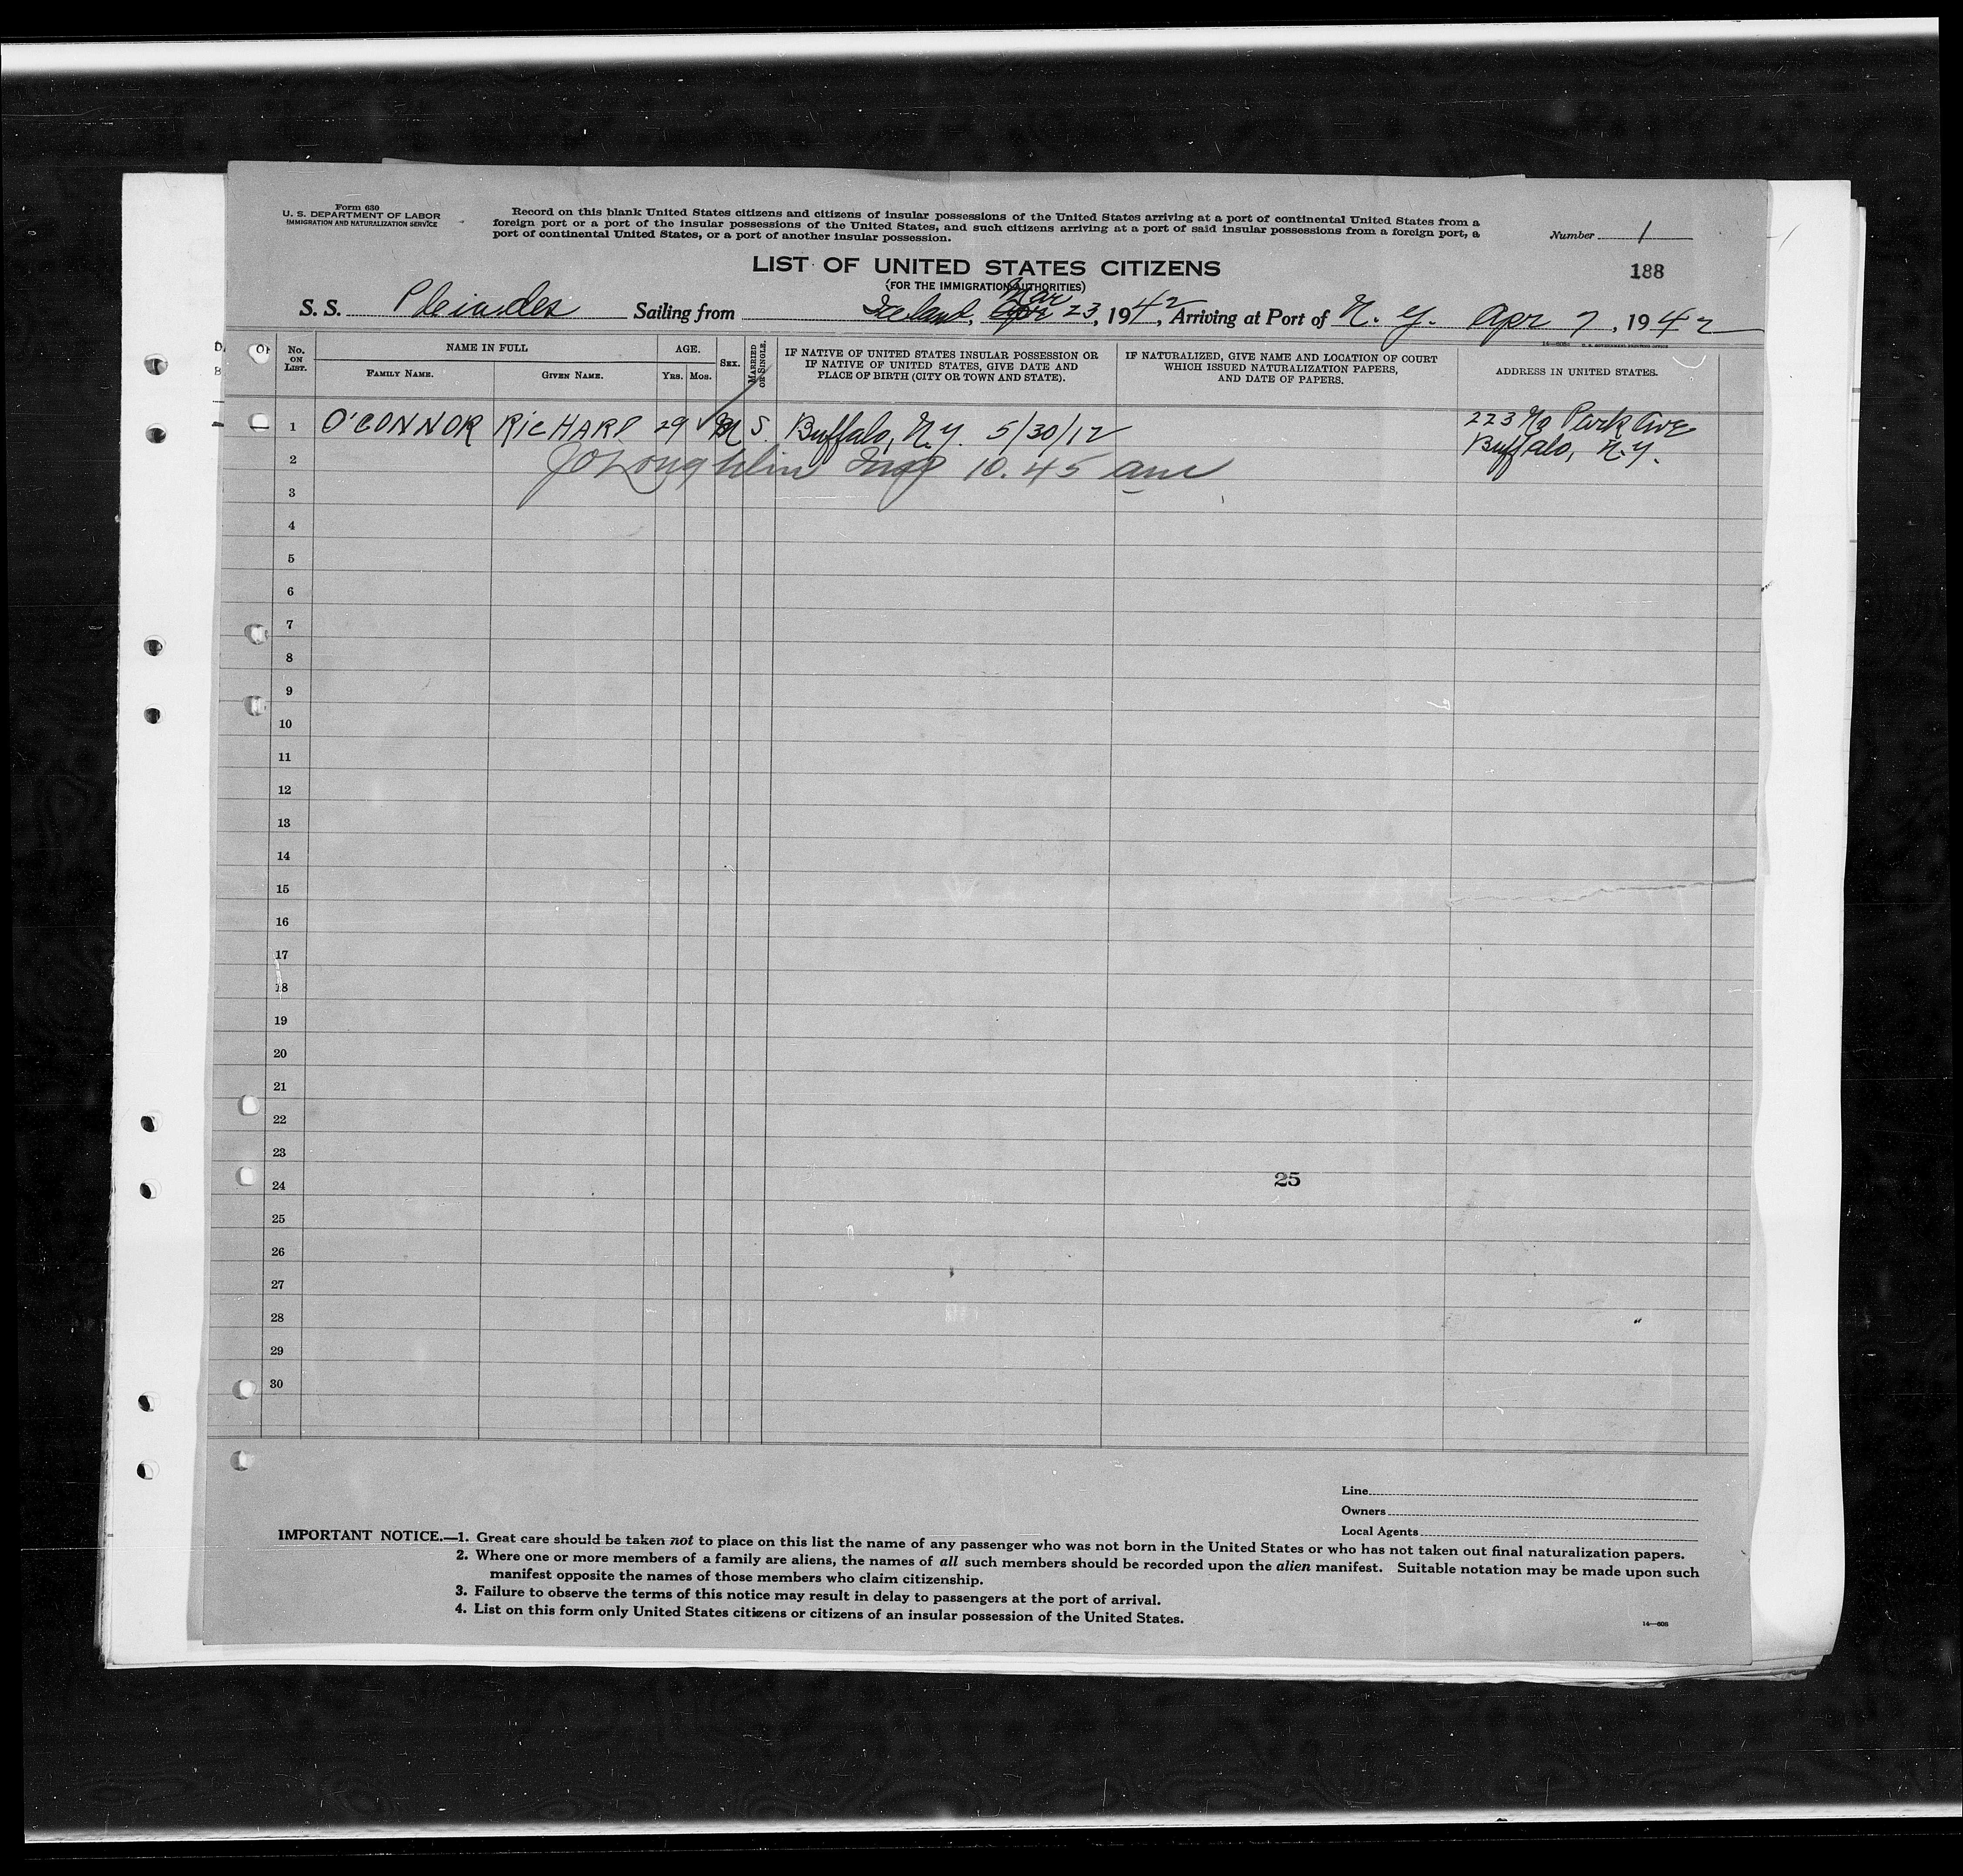 Form 630
U. S. DEPARTMENT OF LABOR
IMMIGRATION AND NATURALIZATION SERVICE
Record on this blank United States citizens and citizens of insular possessions of the United States arriving at a port of continental United States from a
foreign port or a port of the insular possessions of the United States, and such citizens arriving at a port of said insular possessions from a foreign port, a
port of continental United States, or a port of another insular possession.
Number 1
188
LIST OF UNITED STATES CITIZENS
(FOR THE IMMIGRATION AUTHORITIES)
Mar
S. S. Pleiades Sailing from Iceland, Apr 23, 1942, Arriving at Port of N. Y. Apr 7, 1942
14—608 U. S. GOVERNMENT PRINTING OFFICE
No. ON LIST.
NAME IN FULL
FAMILY NAME.
GIVEN NAME.
AGE.
YRS. MOS.
SEX.
MARRIED OR SINGLE.
IF NATIVE OF UNITED STATES INSULAR POSSESSION OR
IF NATIVE OF UNITED STATES, GIVE DATE AND
PLACE OF BIRTH (CITY OR TOWN AND STATE).
IF NATURALIZED, GIVE NAME AND LOCATION OF COURT
WHICH ISSUED NATURALIZATION PAPERS,
AND DATE OF PAPERS.
ADDRESS IN UNITED STATES.
1 O'CONNOR RICHARD 29 M S. Buffalo, N.Y. 5/30/12 223 No Park Ave
Buffalo, N.Y.
2 JO'Loughlin Insp 10.45 am
3
4
5
6
7
8
9
10
11
12
13
14
15
16
17
18
19
20
21
22
23
24 25
25
26
27
28
29
30
Line
Owners
Local Agents
IMPORTANT NOTICE.—1. Great care should be taken not to place on this list the name of any passenger who was not born in the United States or who has not taken out final naturalization papers.
2. Where one or more members of a family are aliens, the names of all such members should be recorded upon the alien manifest. Suitable notation may be made upon such
manifest opposite the names of those members who claim citizenship.
3. Failure to observe the terms of this notice may result in delay to passengers at the port of arrival.
4. List on this form only United States citizens or citizens of an insular possession of the United States.
14—608